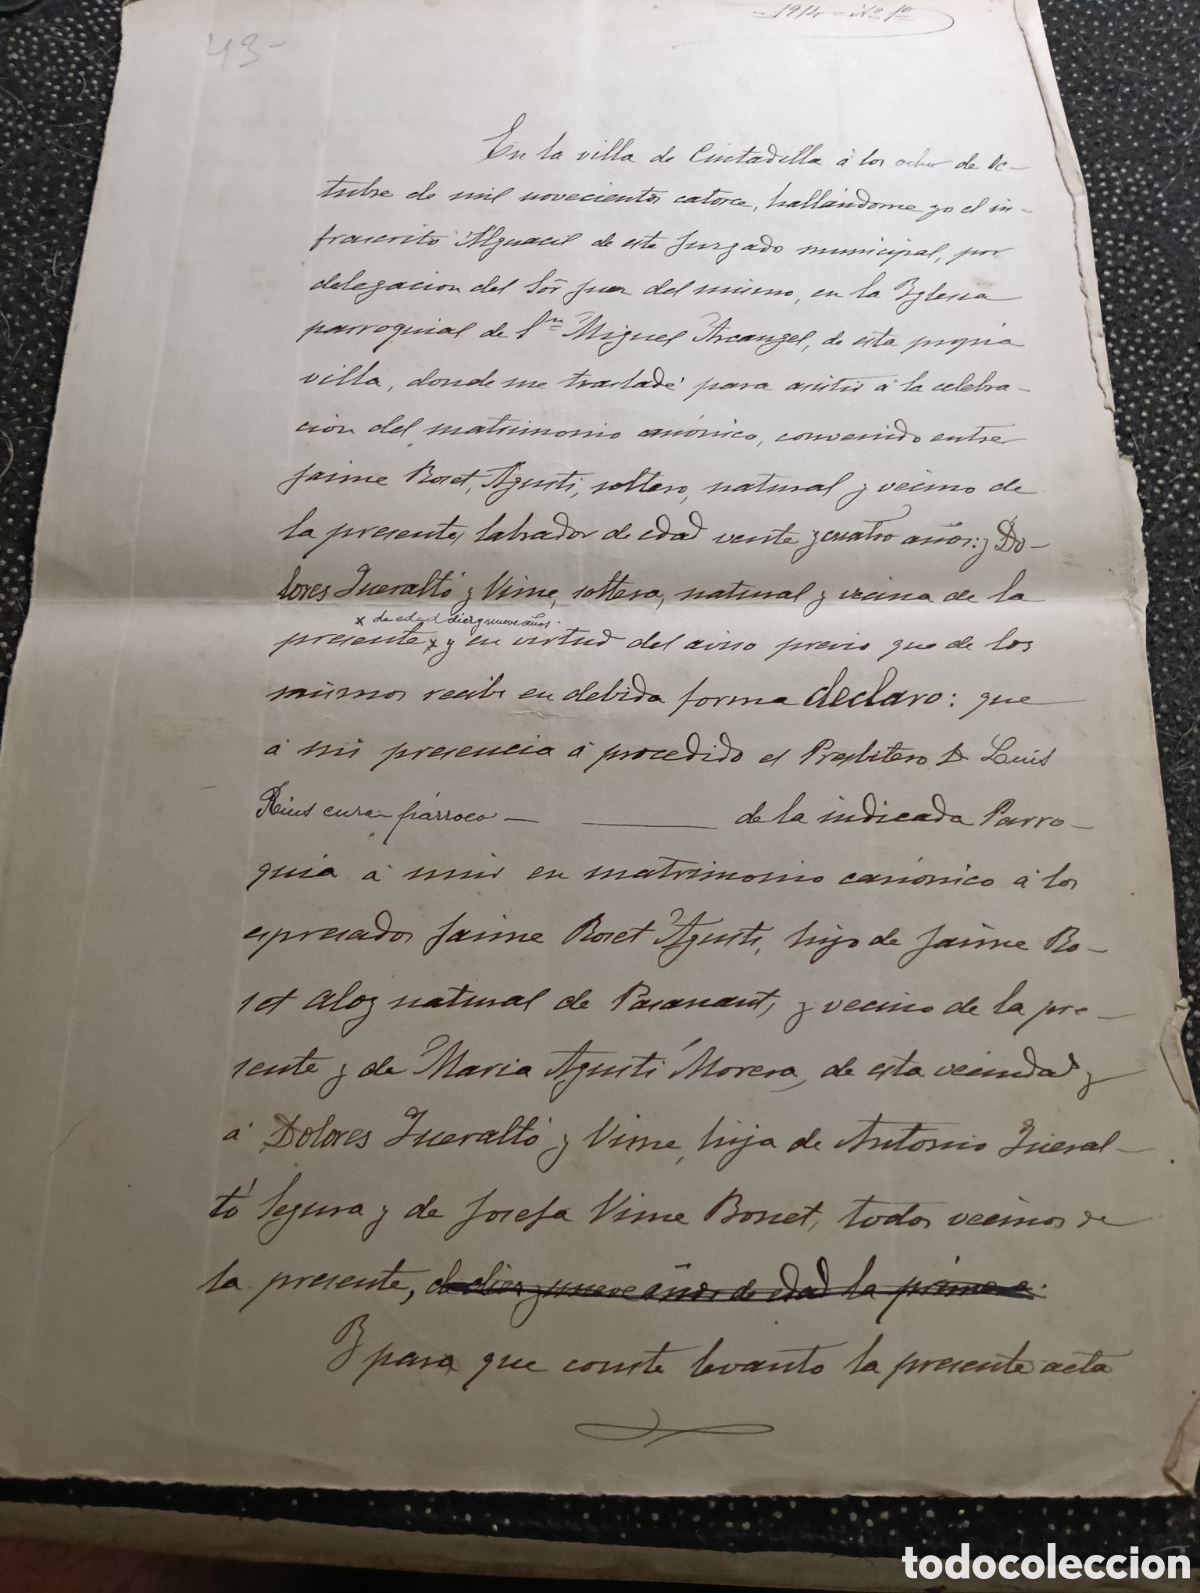 43-
- 1914 - Nº 1º
En la villa de Ciutadilla á los ocho de Oc-
tubre de mil novecientos catorce, hallándome yo el in-
frascrito Alguacil de este Juzgado municipal, por
delegacion del Sor Juez del mismo, en la Yglesia
parroquial de Sn Miguel Arcangel, de esta propia
villa, donde me trasladé para asistir á la celebra-
cion del matrimonio canónico, convenido entre
Jaime Roset, Agusti, soltero, natural y vecino de
la presente, labrador de edad vente y cuatro años: y Do-
lores Queraltó y Vime, soltera, natural y vecina de la
x de edad diez y nueve años.
presente x y en virtud del aviso previo que de los
mismos recibi en debida forma declaro: que
á mi presencia á procedido el Presbitero D. Luis
Rius cura párroco — de la indicada Parro-
quia á unir en matrimonio canónico á los
espresados Jaime Roset Agusti, hijo de Jaime Ro-
set Aloy natural de Pasanant, y vecino de la pre-
sente y de Maria Agusti Morera, de esta vecindad y
á Dolores Queraltó y Vime, hija de Antonio Queral-
tó Segura y de Josefa Vime Bonet, todos vecinos de
la presente, de diez y nueve años de edad la primera.
Y para que conste levanto la presente acta
todocoleccion